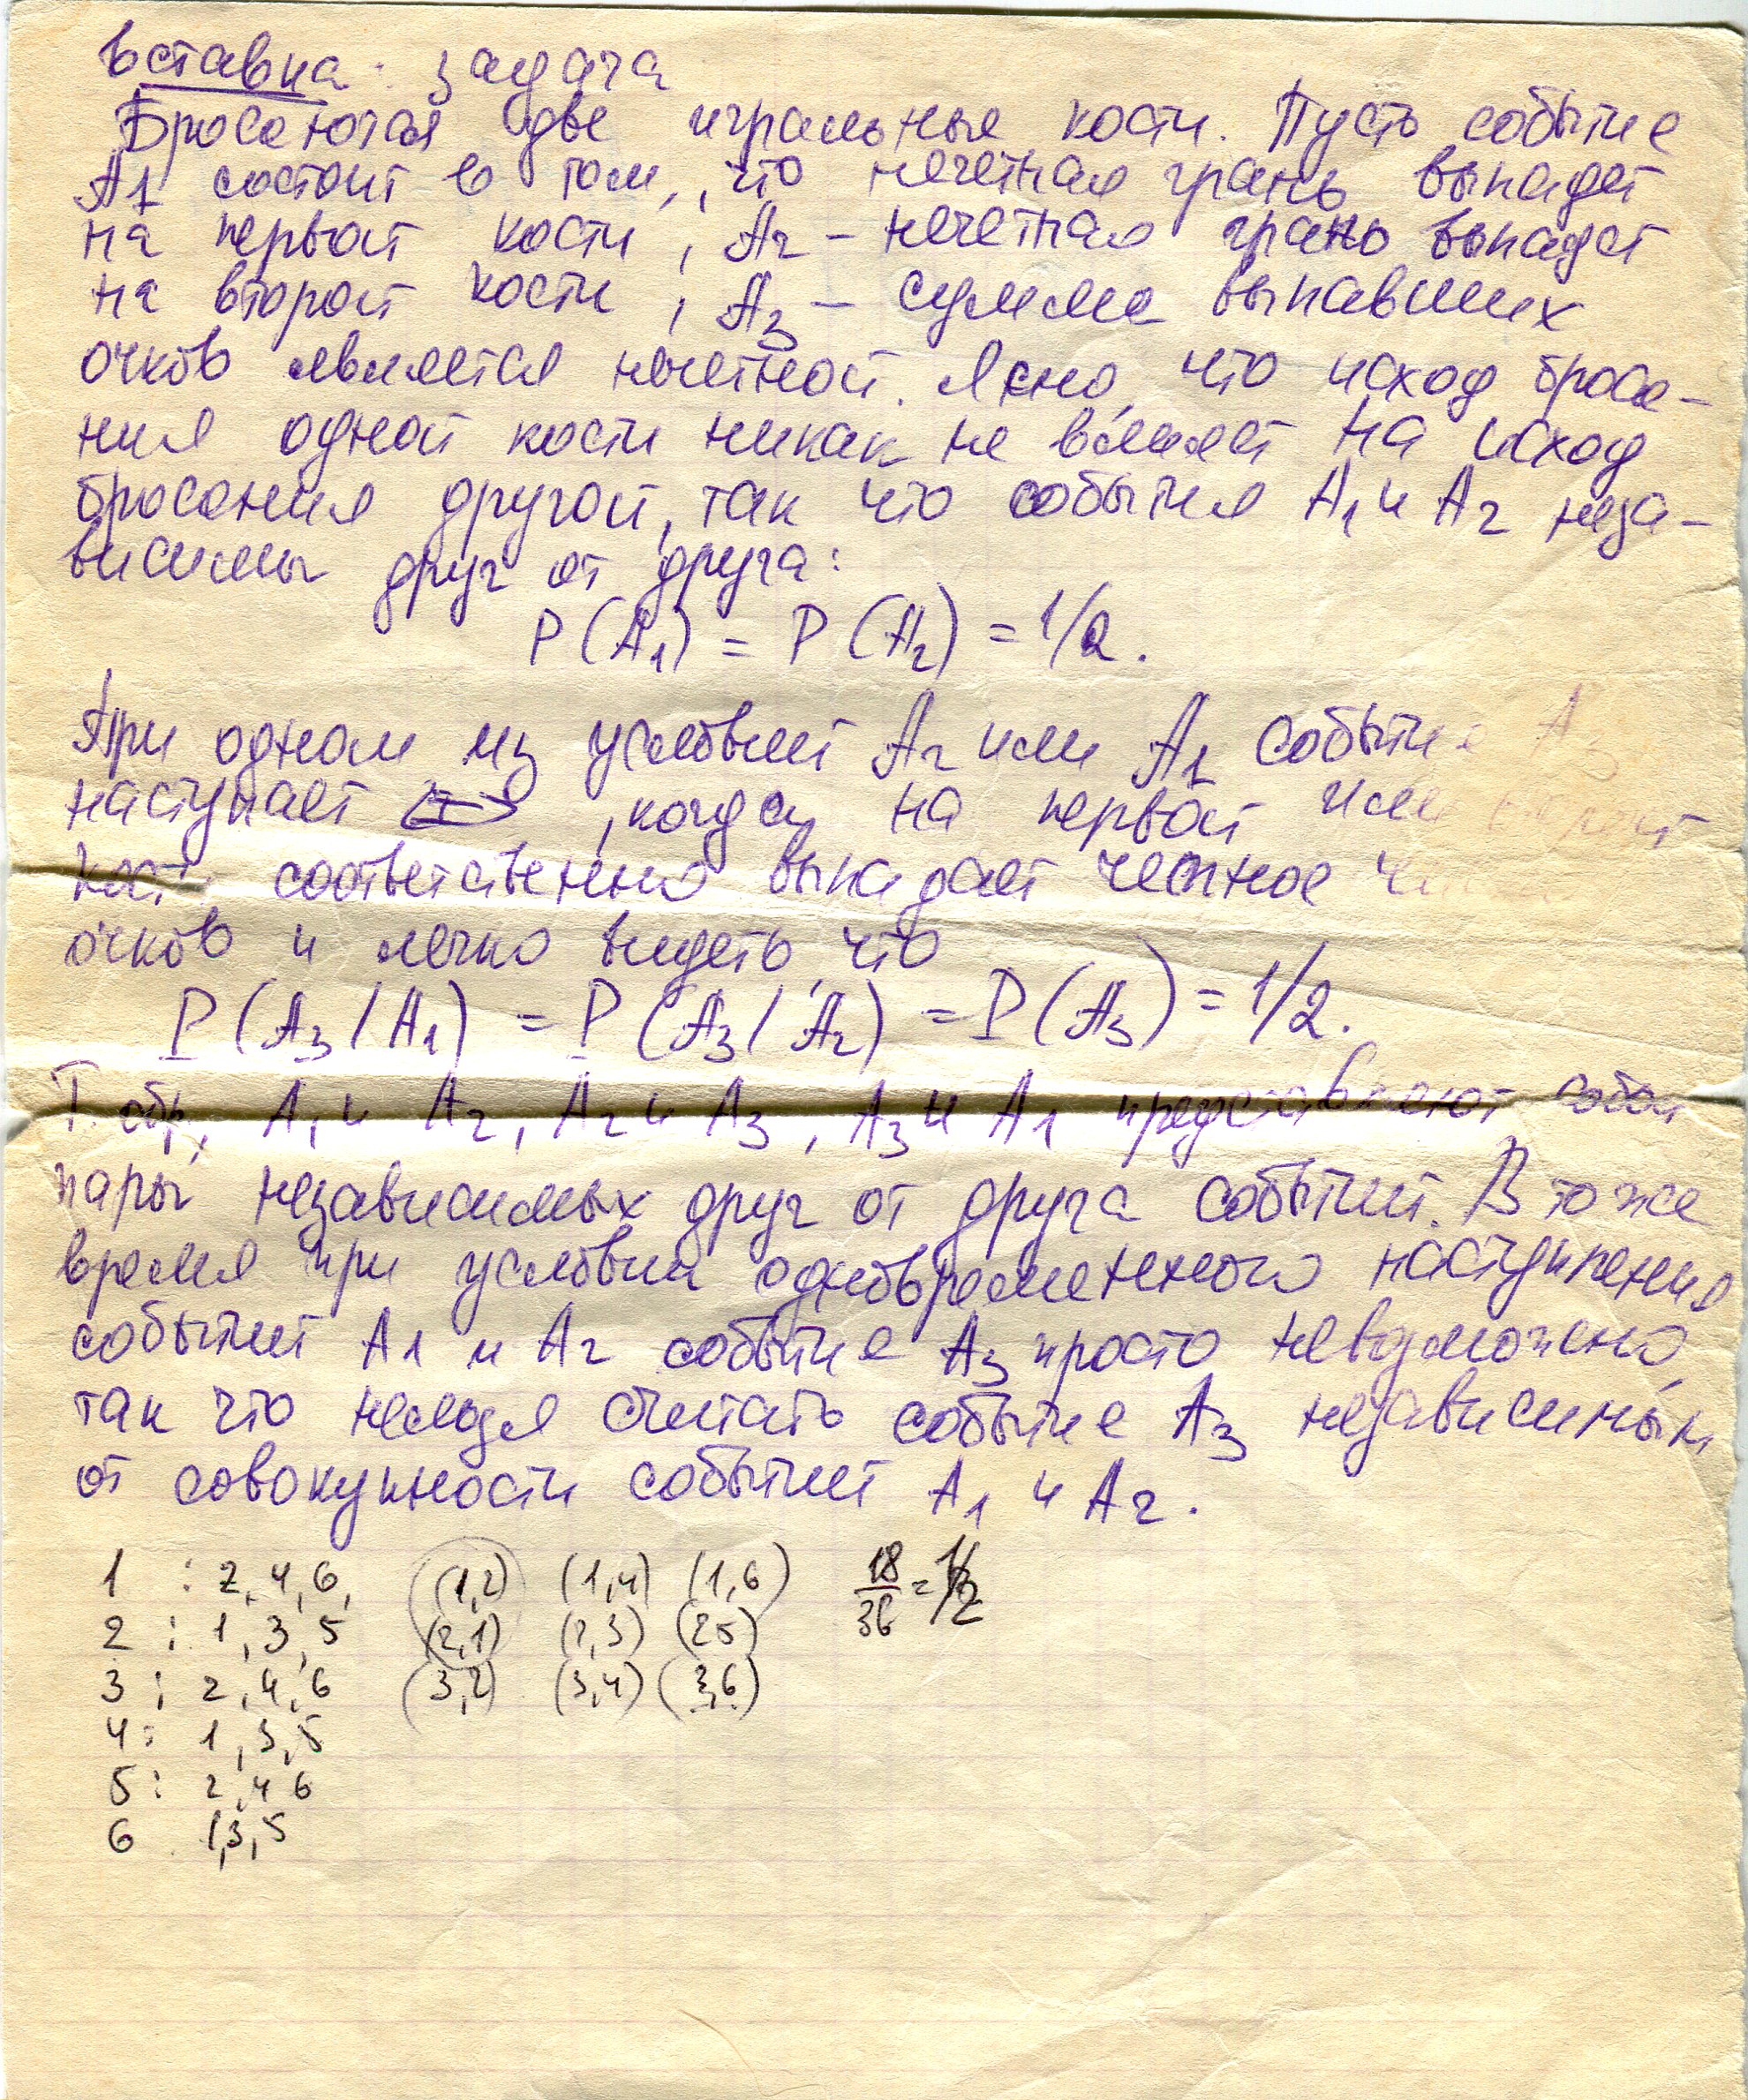 Вставка: задача
Бросаются две игральные кости. Пусть событие
A1 состоит в том, что нечетная грань выпадет
на первой кости, A2 – нечетная грань выпадет
на второй кости, A3 – сумма выпавших
очков является нечетной. Ясно, что исход броса-
ния одной кости никак не влияет на исход
бросания другой, так что события A1 и A2 неза-
висимы друг от друга:
P(A1) = P(A2) = 1/2.
При одном из условий A2 или A1 событие A3
наступает , когда на первой или второй
кости соответственно выпадает четное
очков и легко видеть, что
P(A3/A1) = P(A3/A2) = P(A3) = 1/2.
Т. обр., A1 и A2, A2 и A3, A3 и A1 представляют собой
пары независимых друг от друга событий. В то же
время при условии одновременного наступления
событий A1 и A2 событие A3 просто невозможно,
так что нельзя считать событие A3 независимым
от совокупности событий A1 и A2.
1 : 2,4,6, (1,2) (1,4) (1,6) 18/36 = 1/2
2 : 1,3,5 (2,1) (2,3) (25)
3 : 2,4,6 (3,2) (3,4) (3,6)
4: 1,3,5
5: 2,4 6
6 1,3,5